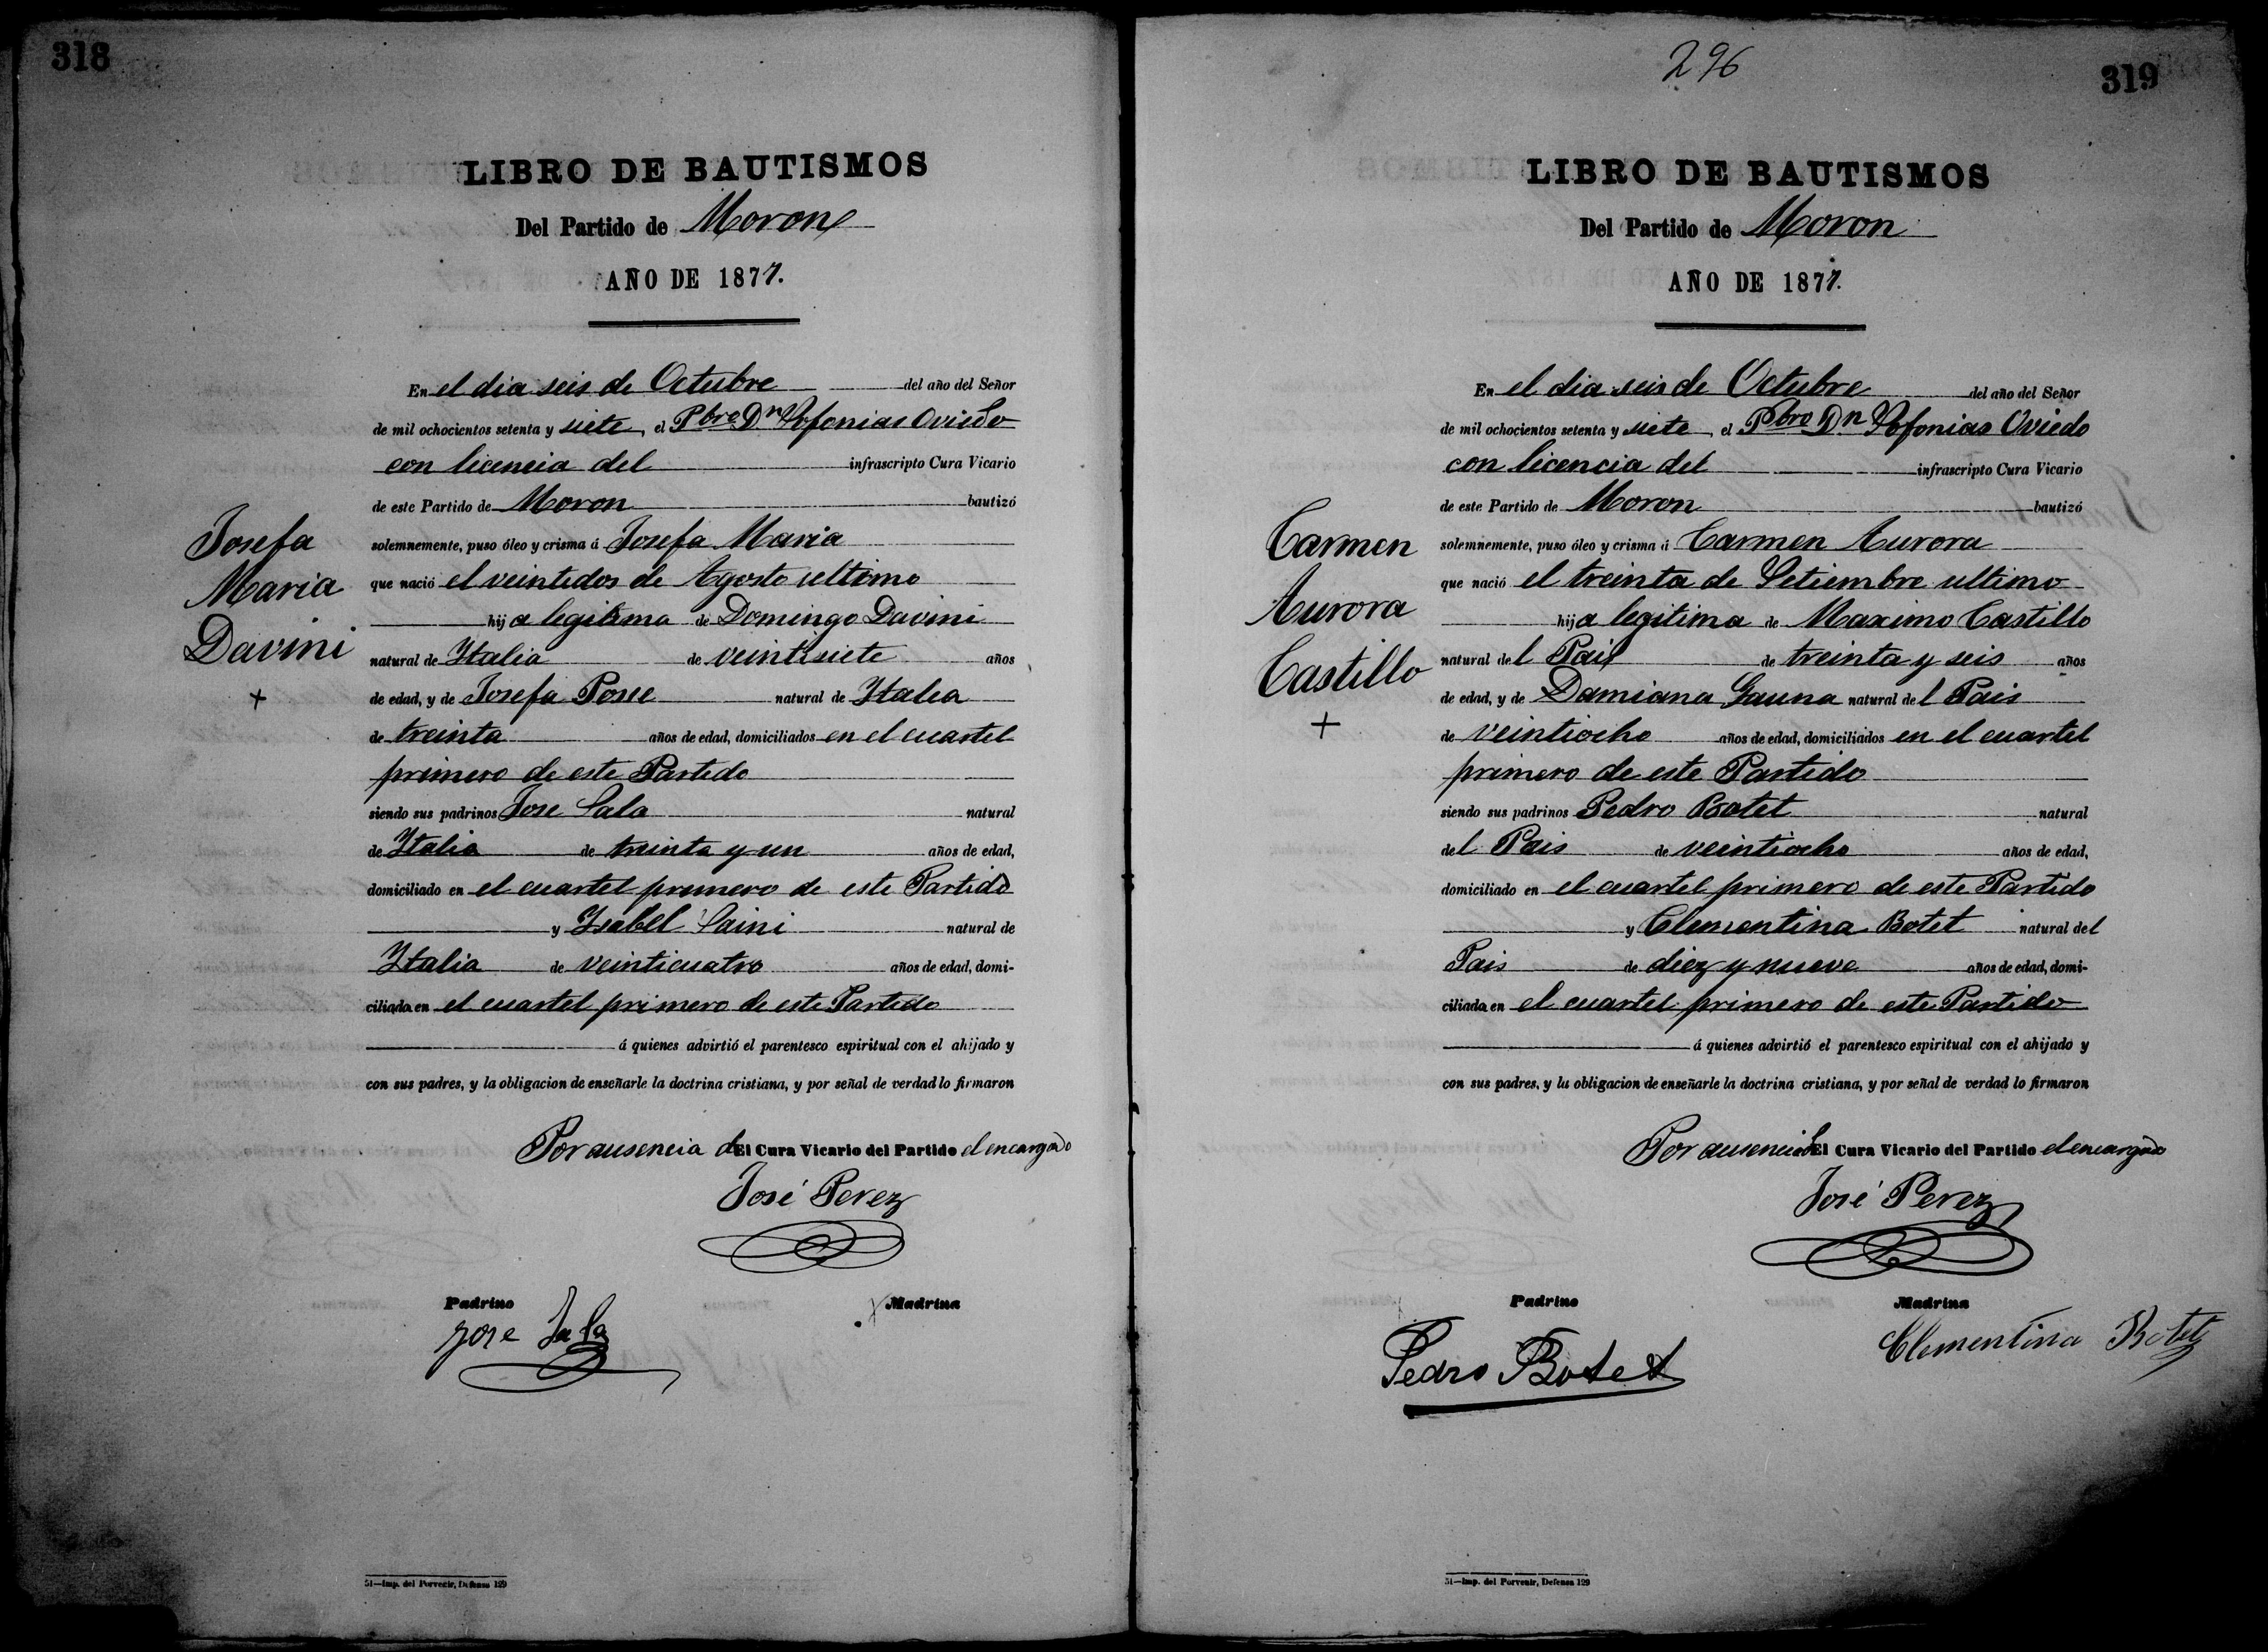 318
LIBRO DE BAUTISMOS
Del Partido de Moron
AÑO DE 1877.
En el dia seis de Octubre del año del Señor
de mil ochocientos setenta y siete, el Pbro Dn Sofonias Oviedo
con licencia del infrascripto Cura Vicario
de este Partido de Moron bautizó
solemnemente, puso óleo y crisma á Josefa Maria
que nació el veintidos de Agosto ultimo
hija legitima de Domingo Davini
natural de Italia de veintisiete años
de edad, y de Josefa Posse natural de Italia
de treinta años de edad, domiciliados en el cuartel
primero de este Partido
siendo sus padrinos Jose Sala natural
de Italia de treinta y un años de edad,
domiciliado en el cuartel primero de este Partido
y Isabel Saini natural de
Italia de veinticuatro años de edad, domi-
ciliada en el cuartel primero de este Partido
á quienes advirtió el parentesco espiritual con el ahijado y
con sus padres, y la obligacion de enseñarle la doctrina cristiana, y por señal de verdad lo firmaron
Josefa
Maria
Davini
+
Por ausencia del El Cura Vicario del Partido el encargado
José Perez
Padrino
Madrina
Jose Sala
51—Imp. del Porvenir, Defensa 129
296
319
LIBRO DE BAUTISMOS
Del Partido de Moron
AÑO DE 1877.
En el dia seis de Octubre del año del Señor
de mil ochocientos setenta y siete, el Pbro Dn Sofonias Oviedo
con licencia del infrascripto Cura Vicario
de este Partido de Moron bautizó
solemnemente, puso óleo y crisma á Carmen Aurora
que nació el treinta de Setiembre ultimo
hija legitima de Maximo Castillo
natural del Pais de treinta y seis años
de edad, y de Damiana Gauna natural del Pais
de veintiocho años de edad, domiciliados en el cuartel
primero de este Partido
siendo sus padrinos Pedro Botet natural
del Pais de veintiocho años de edad,
domiciliado en el cuartel primero de este Partido
y Clementina Botet natural del
Pais de diez y nueve años de edad, domi-
ciliada en el cuartel primero de este Partido
á quienes advirtió el parentesco espiritual con el ahijado y
con sus padres, y la obligacion de enseñarle la doctrina cristiana, y por señal de verdad lo firmaron
Carmen
Aurora
Castillo
+
Por ausencia del El Cura Vicario del Partido el encargado
José Perez
Padrino
Madrina
Pedro Botet
Clementina Botet
51—Imp. del Porvenir, Defensa 129